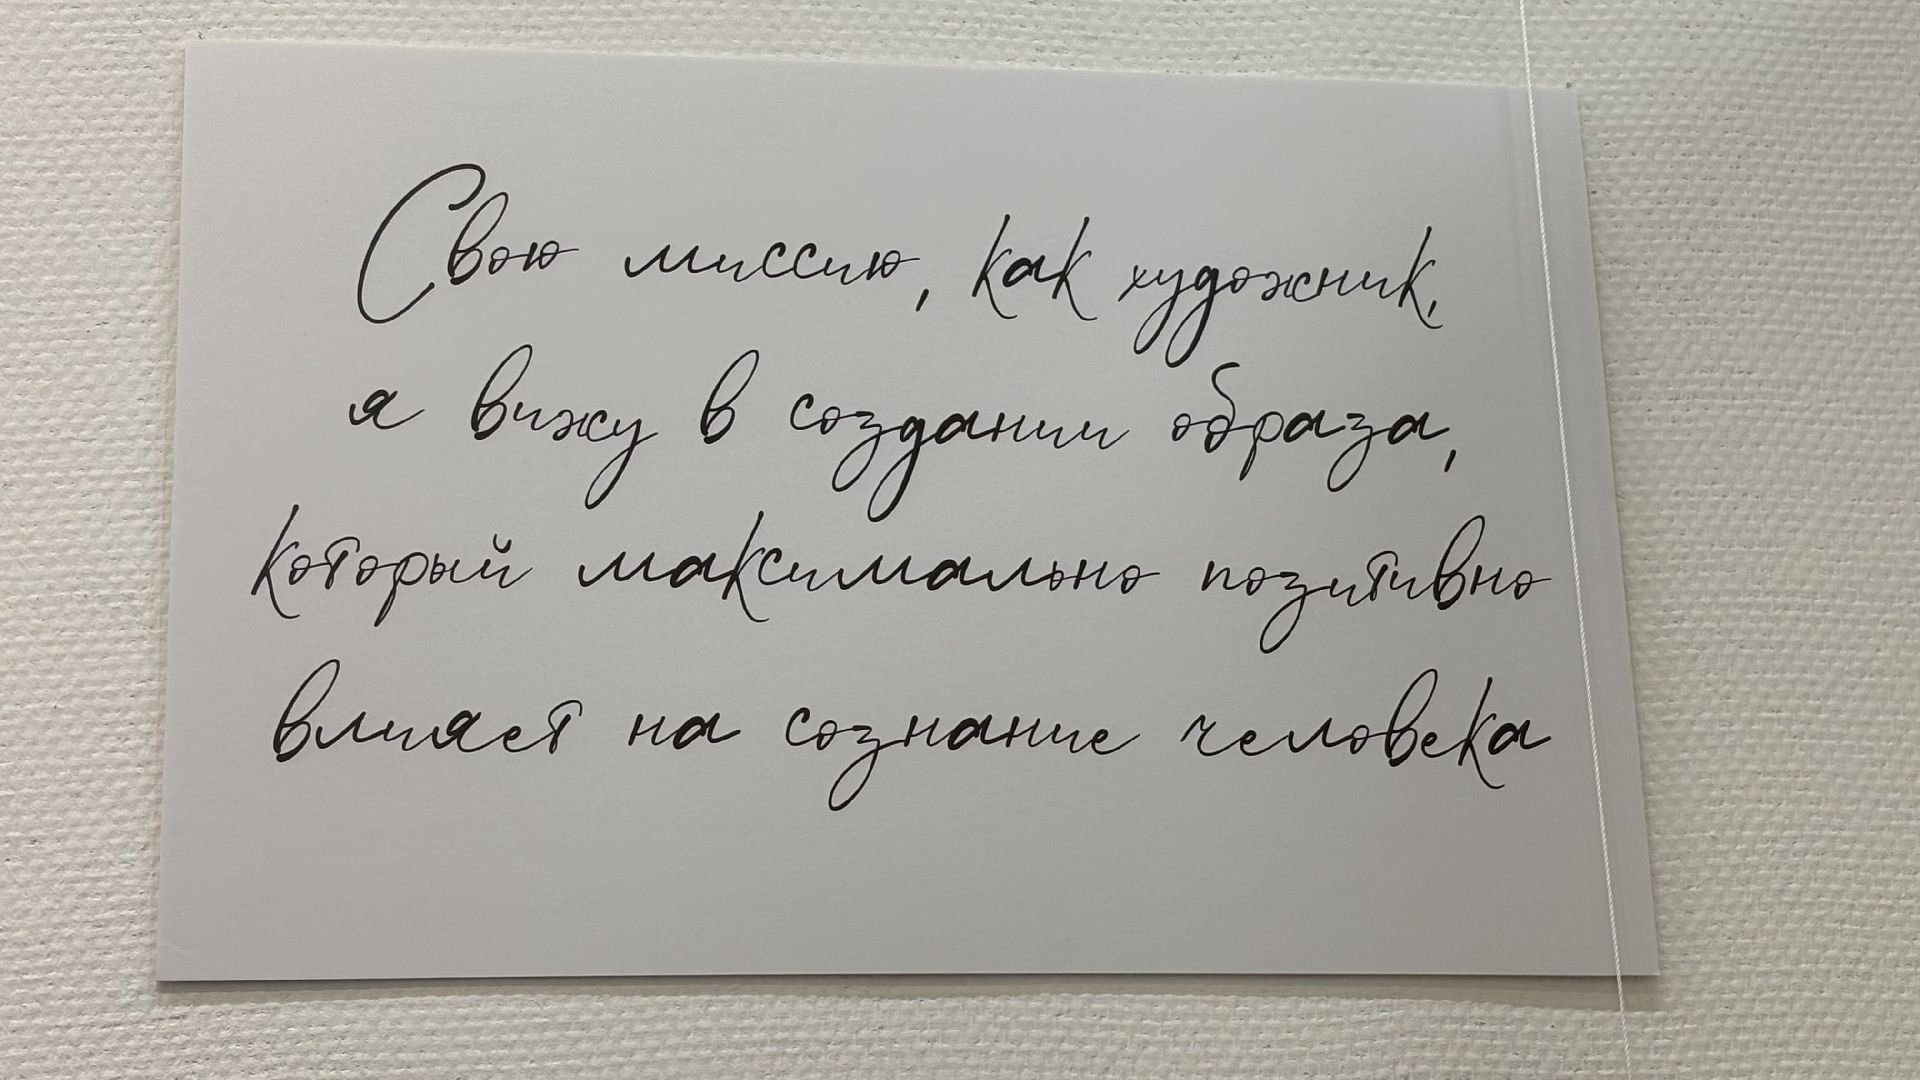 Свою миссию, как художник,
я вижу в создании образа,
который максимально позитивно
влияет на сознание человека